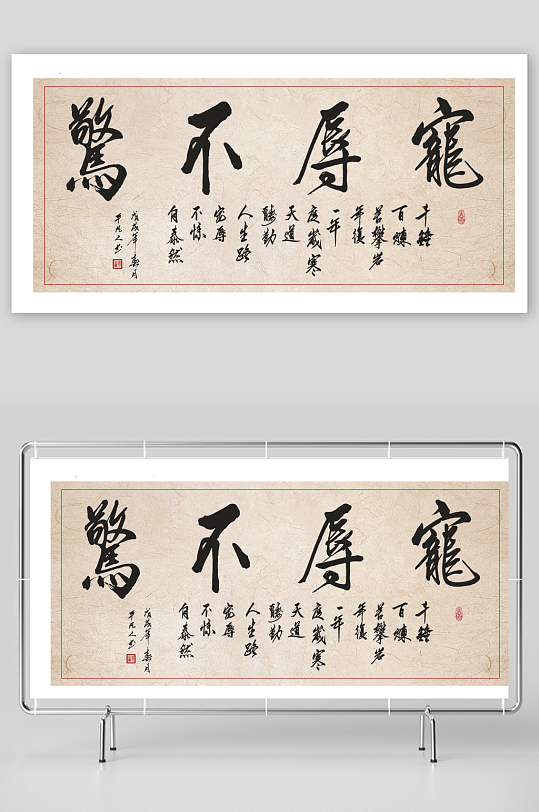 寵辱不驚
千錘
百煉
苦攀岩
年復
一年
度歲寒
天道
人生路
宠辱
不惊
自泰然
戊戌年春月
平凡人书
寵辱不驚
千錘
百煉
苦攀岩
年復
一年
度歲寒
天道
人生路
宠辱
不惊
自泰然
戊戌年春月
平凡人书